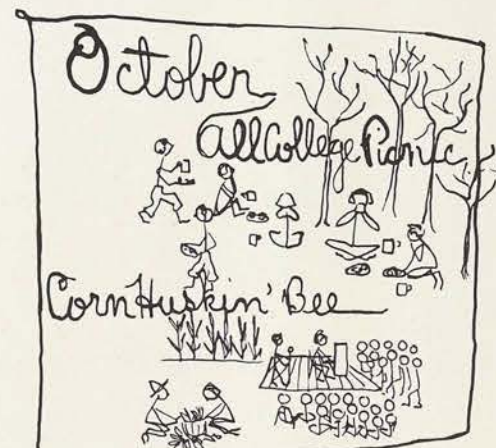 October
All College Picnic
Corn Huskin' Bee